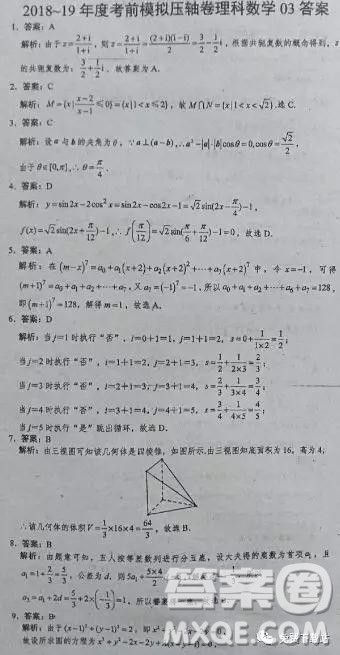 2018~19 年度考前模拟压轴卷理科数学 03 答案
1. 答案：A
解析：由于 z=(2+i)/(1+i), z=(2+i)/(1+i)=(2+i)(1-i)/2=3/2-1/2 i，根据共轭复数的概念得到，z
的共轭复数为：3/2+1/2 i．故答案为 A.
2. 答案：C
解析：M={x|(x-2)/(x-1)≤0}={x|1<x≤2}，故 M∩N={x|1<x<√2}.选 C.
3. 答案：C
解析：设 a 与 b 的夹角为 θ，∵a⊥(a-b),∴a²-|a|·|b|cosθ=0,cosθ=√2/2，
由于 θ∈[0,π],∴θ=π/4.
4. 答案：D
解析：y=sin2x-2cos²x=sin2x-cos2x-1=√2sin(2x-π/4)-1，
f(x)=√2sin(2x+π/12)-1,∴f(π/12)=√2sin(π/6+π/12)-1=0，故选 D.
5. 答案：A
解析：在 (m-x)⁷=a₀+a₁(x+2)+a₂(x+2)²+⋯+a₇(x+2)⁷ 中，令 x=-1，可得
(m+1)⁷=a₀+a₁+a₂+⋯+a₇，又 a₇=(-1)⁷=-1，所以 a₀+a₁+a₂+⋯+a₇=128，
即 (m+1)⁷=128，解得 m=1，故选 A.
6. 答案：D
解析：当 j=1 时执行“否”，i=0+1=1，j=1+1=2，s=0+1/(1×2)=1/2；
当 j=2 时执行“否”，i=1+1=2，j=2+1=3，s=1/2+1/(2×3)=2/3；
当 j=3 时执行“否”，i=2+1=3，j=3+1=4，s=2/3+1/(3×4)=3/4；
当 j=4 时执行“否”，i=3+1=4，j=4+1=5，s=3/4+1/(4×5)=4/5；
当 j=5 时执行“是”跳出循环，故选 D.
7. 答案：B
解析：由三视图可知该几何体是四棱锥，如图所示.由三视图知底面积为 16，高为 4，
∴该几何体的体积 V=1/3×16×4=64/3，故选 B.
8. 答案：B
解析：由题意可知，五人按等差数列进行分五鹿，设大夫得的鹿数为首项 a₁，且
a₁=1+2/3=5/3，公差为 d，则 5a₁+(5×4)/2
a₃=a₁+2d=5/3+2×(-1/3)=1，所以
9. 答案：B
解析：由于 (x-1)²+(y-1)²=2，即 x²
故设所求圆的方程为 x²+y²-2x-2y+
答案圈